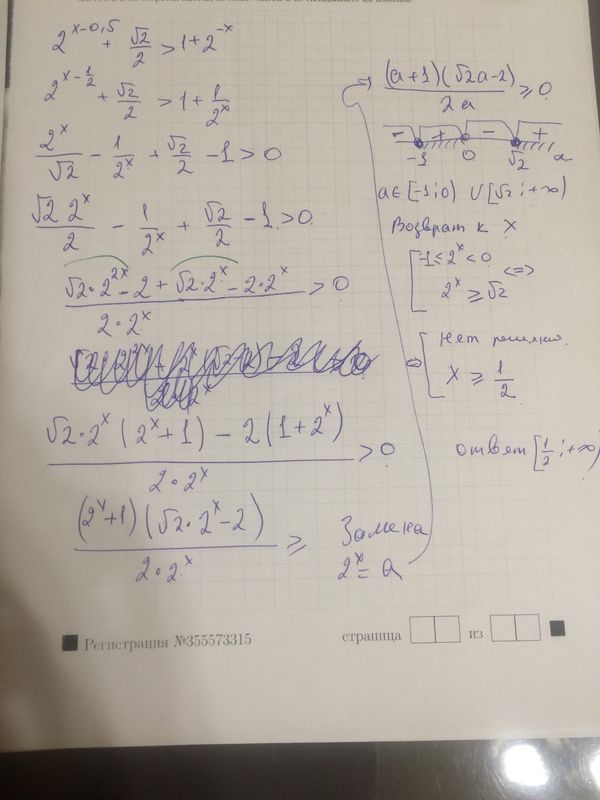 2^{x-0,5} + √2/2 > 1 + 2^{-x}
2^{x-1/2} + √2/2 > 1 + 1/2^x
2^x/√2 - 1/2^x + √2/2 - 1 > 0
√2 2^x/2 - 1/2^x + √2/2 - 1 > 0
(√2·2^{2x} - 2 + √2·2^x - 2·2^x)/(2·2^x) > 0
(√2·2^x (2^x+1) - 2(1+2^x))/(2·2^x) > 0
(2^x+1)(√2·2^x-2)/(2·2^x) ≥
Замена
2^x = a
(a+1)(√2a-2)/(2a) ≥ 0
- + - +
-1 0 √2 a
a∈[-1;0) ∪ [√2;+∞)
Возврат к x
[ -1 ≤ 2^x < 0
<=>
2^x ≥ √2
[ Нет решений.
x ≥ 1/2
ответ [1/2;+∞)
Регистрация №355573315
страница из